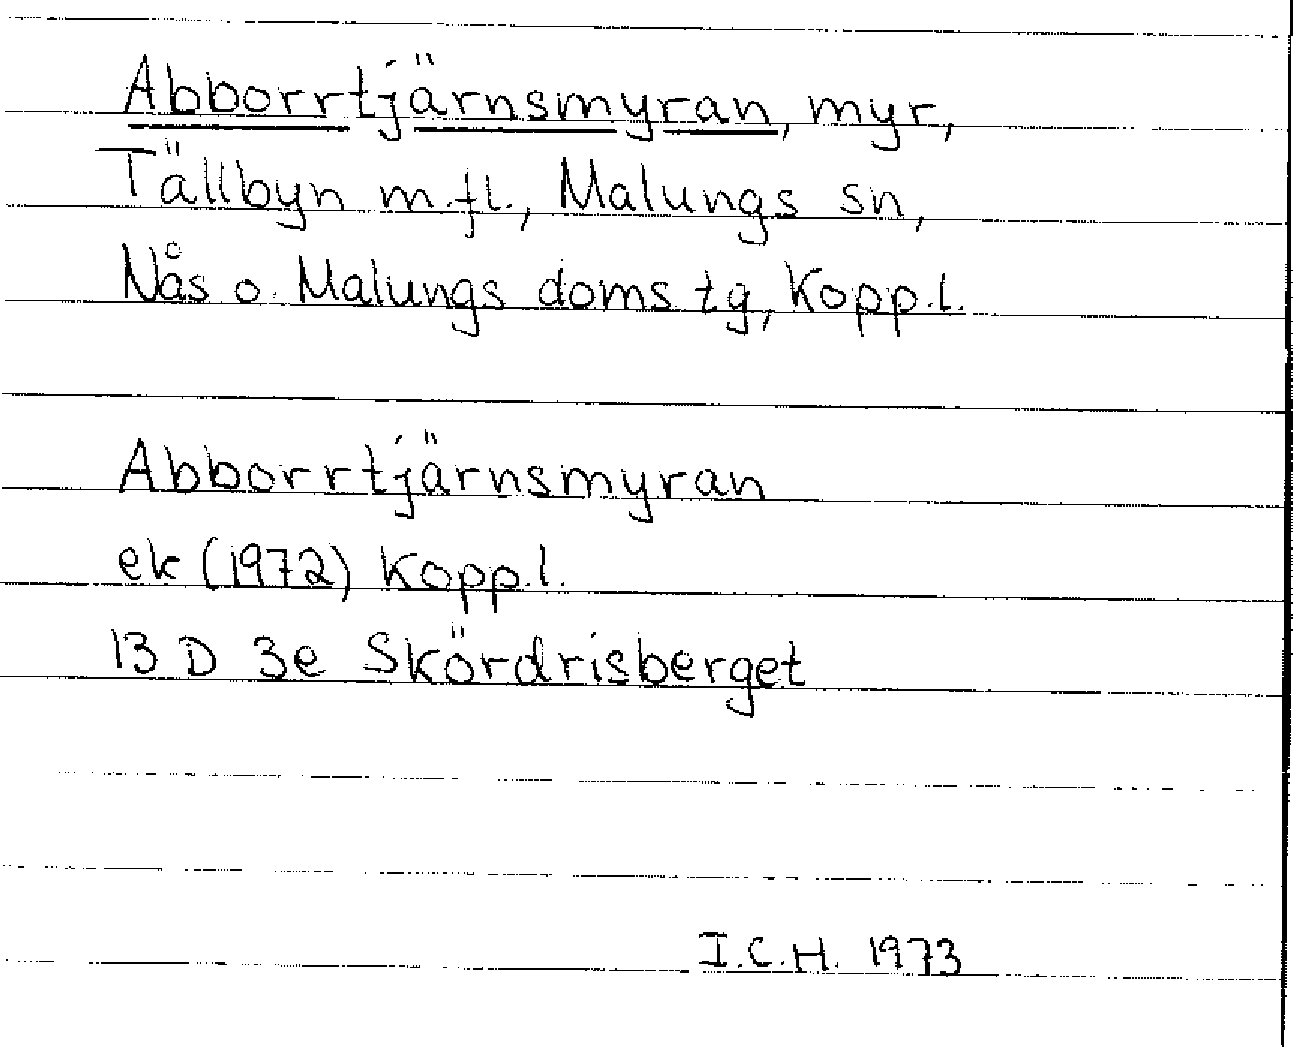 Abborrtjärnsmyran, myr,
Tällbyn m.fl., Malungs sn,
Nås o. Malungs doms tg, Kopp.l.
Abborrtjärnsmyran
ek (1972) Kopp.l.
13 D 3e Skördrisberget
I.C.H. 1973